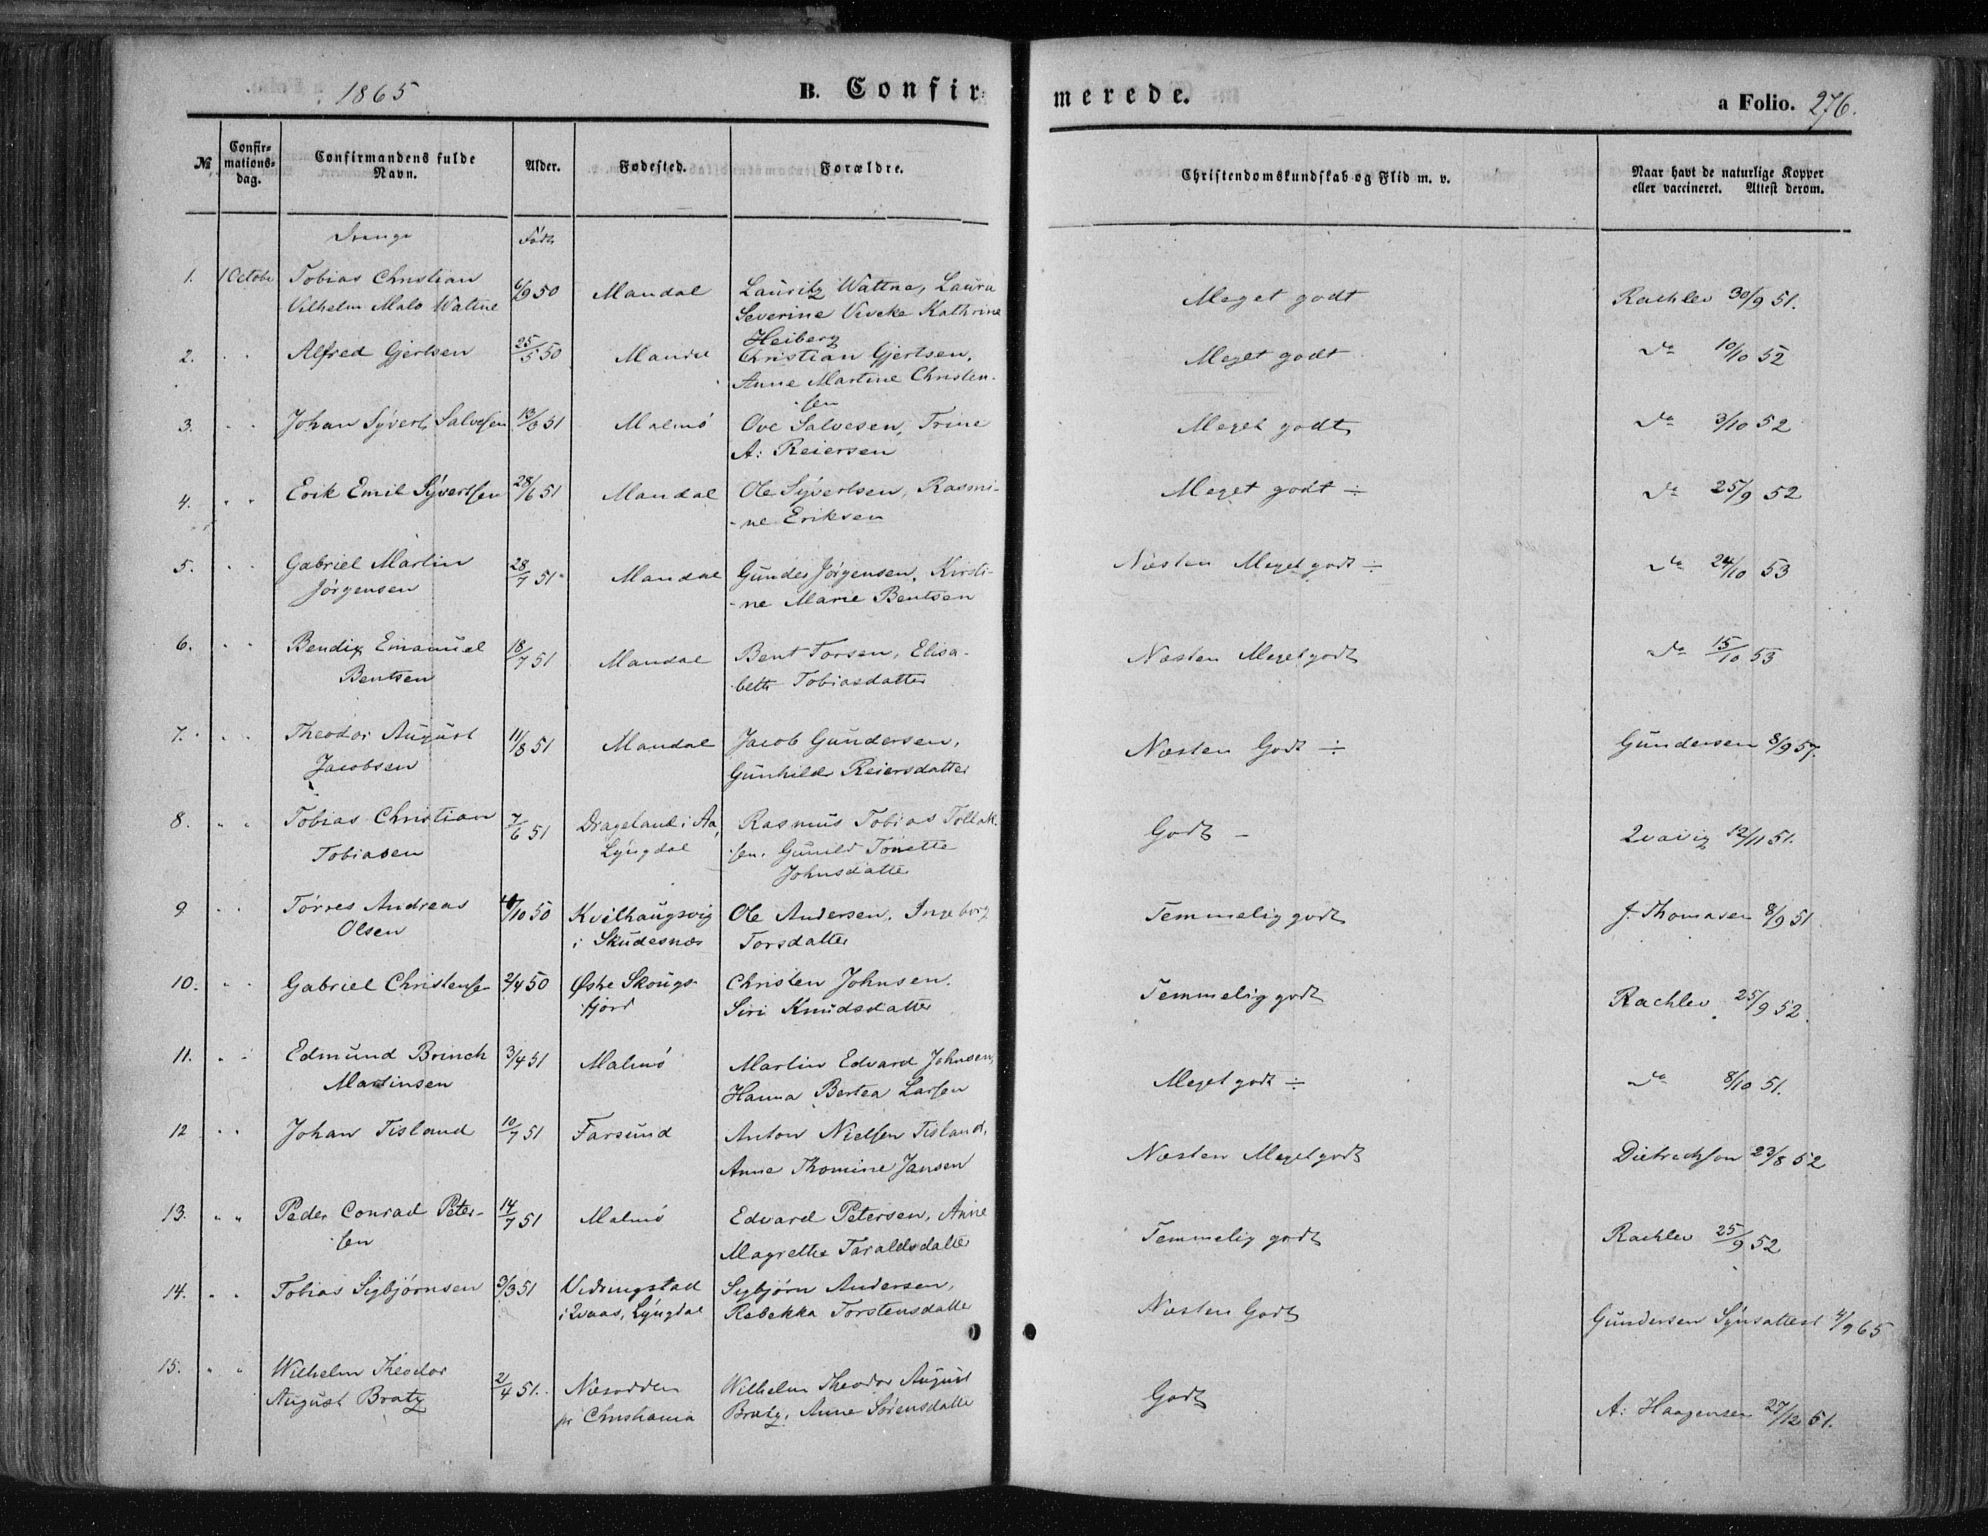 1865 B. Confirmerede. a Folio. 276.
№ Confirmationsdag. Confirmandens fulde Navn. Alder. Fødested. Forældre. Christendomskundskab og Flid m. v. Naar havt de naturlige Kopper eller vaccineret. Attest derom.
Drenge Født
1. 1 Octobr Tobias Christian Mandal Lauritz Wattne, Laura Meget godt Rachlev 30/9 51.
Vilhelm Malo Wattne 6/9 50 Severine Viveke Kathrine
Heiberg
2. " " Alfred Gjertsen 25/5 50 Mandal Christian Gjertsen, Meget godt do 10/10 52
Anne Martine Christen-
sen
3. " " Johan Syvert Salvesen 13/6 51 Malmø Ove Salvesen, Trine Meget godt do 3/10 52
A: Reiersen
4. " " Erik Emil Syvertsen 28/6 51 Mandal Ole Syvertsen, Rasmi- Meget godt ÷ do 25/9 52
-ne Eriksen
5. " " Gabriel Martin 28/7 51 Mandal Gunder Jørgensen, Kirsti- Næsten Meget godt ÷ do 24/10 53
Jørgensen -ne Marie Bentsen
6. " " Bendix Emanuel 18/7 51 Mandal Bent Torsen, Elisa- Næsten Meget godt do 15/10 53
Bentsen beth Tobiasdatter
7. " " Theodor August 11/8 51 Mandal Jacob Gundersen, Næsten Godt ÷ Gundersen 8/9 57.
Jacobsen Gunhild Reiersdatter
8. " " Tobias Christian 7/6 51 Drageland i Aa, Rasmus Tobias Tollak- Godt - Qvavig 12/11 51.
Tobiasen Lyngdal sen. Gunild Tonette
Johnsdatter
9 " " Tørres Andreas /10 50 Kvilhaugsvig Ole Andersen, Ingeborg Temmelig godt J. Thomasen 8/9 51.
Olsen i Skudesnæs Torsdatter
10. " " Gabriel Christensen 2/4 50 Østre Skougs- Christen Johnsen. Temmelig godt Rachlev 25/9 52.
fjord Siri Knudsdatter
11. " " Edmund Brinch 3/4 51 Malmø Martin Edvard Johnsen, Meget godt ÷ do 8/10 51.
Martinsen Hanna Bertea Larsen
12 " " Johan Tisland 10/7 51 Farsund Anton Nielsen Tisland, Næsten Meget godt Dietrechson 23/8 52
Anne Thomine Jansen
13. " " Peder Conrad Peter- 14/7 51 Malmø Edvard Petersen, Anne Temmelig godt Rachlev 25/9 52
sen Magrethe Taraldsdatter
14. " " Tobias Sigbjørnsen 3/3 51 Vidringstad Sigbjørn Andersen, Næsten Godt Gundersen Synsattest 4/9 65
i Qvaas, Lyngdal Rebekka Torstensdatter
15. " " Wilhelm Theodor 2/4 51. Næsodden Wilhelm Theodor August Godt A: Haagensen 27/12 51.
August Bratz pr Christiania Bratz, Anne Sørensdatter